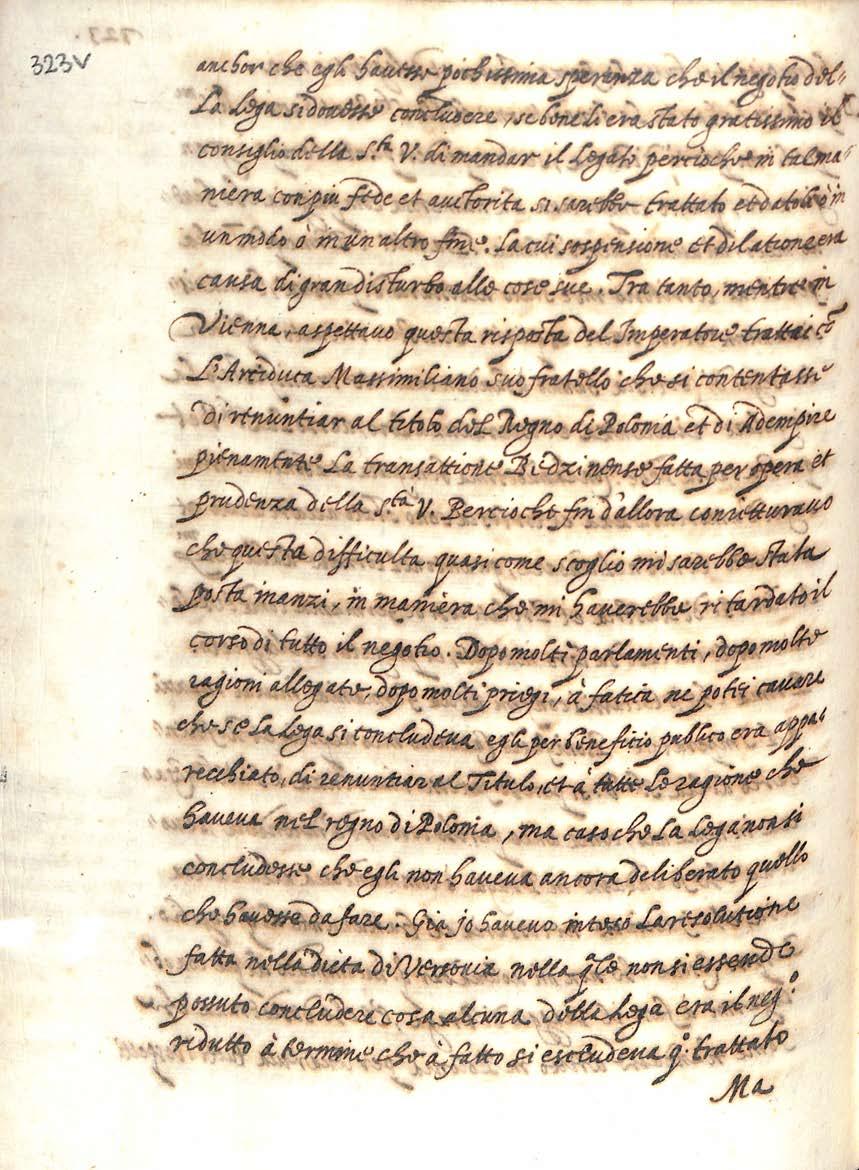 323v
anchor che egli havesse pochissima sperenza che il negotio del-
La Lega si dovesse concludere, se bene li era stato gratissimo il
consiglio della S.tà V. di mandar il Legato percioche in tal ma-
niera con più fede et auctorita si sarebbe trattato et datoli ò in
un modo ò in un altro fine. La cui sospensione et dilatione era
causa di gran disturbo alle cose sue. Tra tanto, mentre in
Vienna, aspettavo questa risposta del Imperatore trattai cõ
L'Arciduca Massimiliano suo fratello che si contentasse
di renuntiar al titolo del Regno di Polonia et di Adempire
pienamente La transattione Bedzinense fatta per opera et
prudenza della S.tà V. Percioche fin d'allora conietturavo
che questa difficulta quasi come scoglio mi sarebbe stata
posta inanzi, in maniera che mi haverebbe ritardato il
corso di tutto il negotio. Dopo molti parlamenti, dopo molte
ragioni allegate, dopo molti priegi, à fatica ne potei cavare
che se La Lega si concludeva egli per beneficio publico era appa-
recchiato, di renuntiar al Titulo, et à tutte Le ragione che
haveva nel regno di Polonia, ma caso che La Lega non si
concludesse che egli non haveva ancora deliberato quello
che havesse da fare. Gia jo havevo inteso La resolutione
fatta nella dieta di Versovia nella q.le non si essendo
possuto concludere cosa alcuna della Lega era il neg.o
ridutto à termine che à fatto si escludeva q.o trattato
Ma